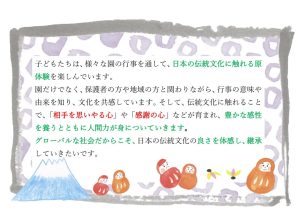 子どもたちは、様々な園の行事を通して、日本の伝統文化に触れる原
体験を楽しんでいます。
園だけでなく、保護者の方や地域の方と関わりながら、行事の意味や
由来を知り、文化を共感しています。そして、伝統文化に触れること
で、「相手を思いやる心」や「感謝の心」などが育まれ、豊かな感性
を養うとともに人間力が身についていきます。
グローバルな社会だからこそ、日本の伝統文化の良さを体感し、継承
していきたいです。